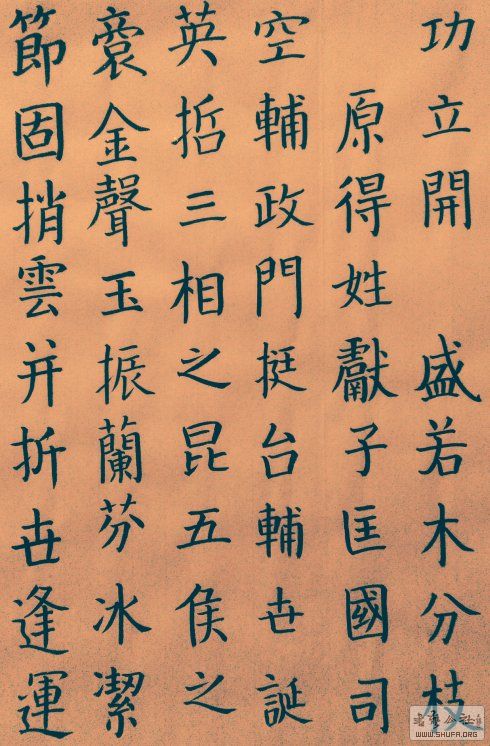 功立開 盛若木分枝
原得姓獻子匡國司
空輔政門挺台輔世誕
英哲三相之昆五侯之
裔金聲玉振蘭芬冰潔
節固捎雲并折世逢運
書艺公社
WWW.SHUFA.ORG